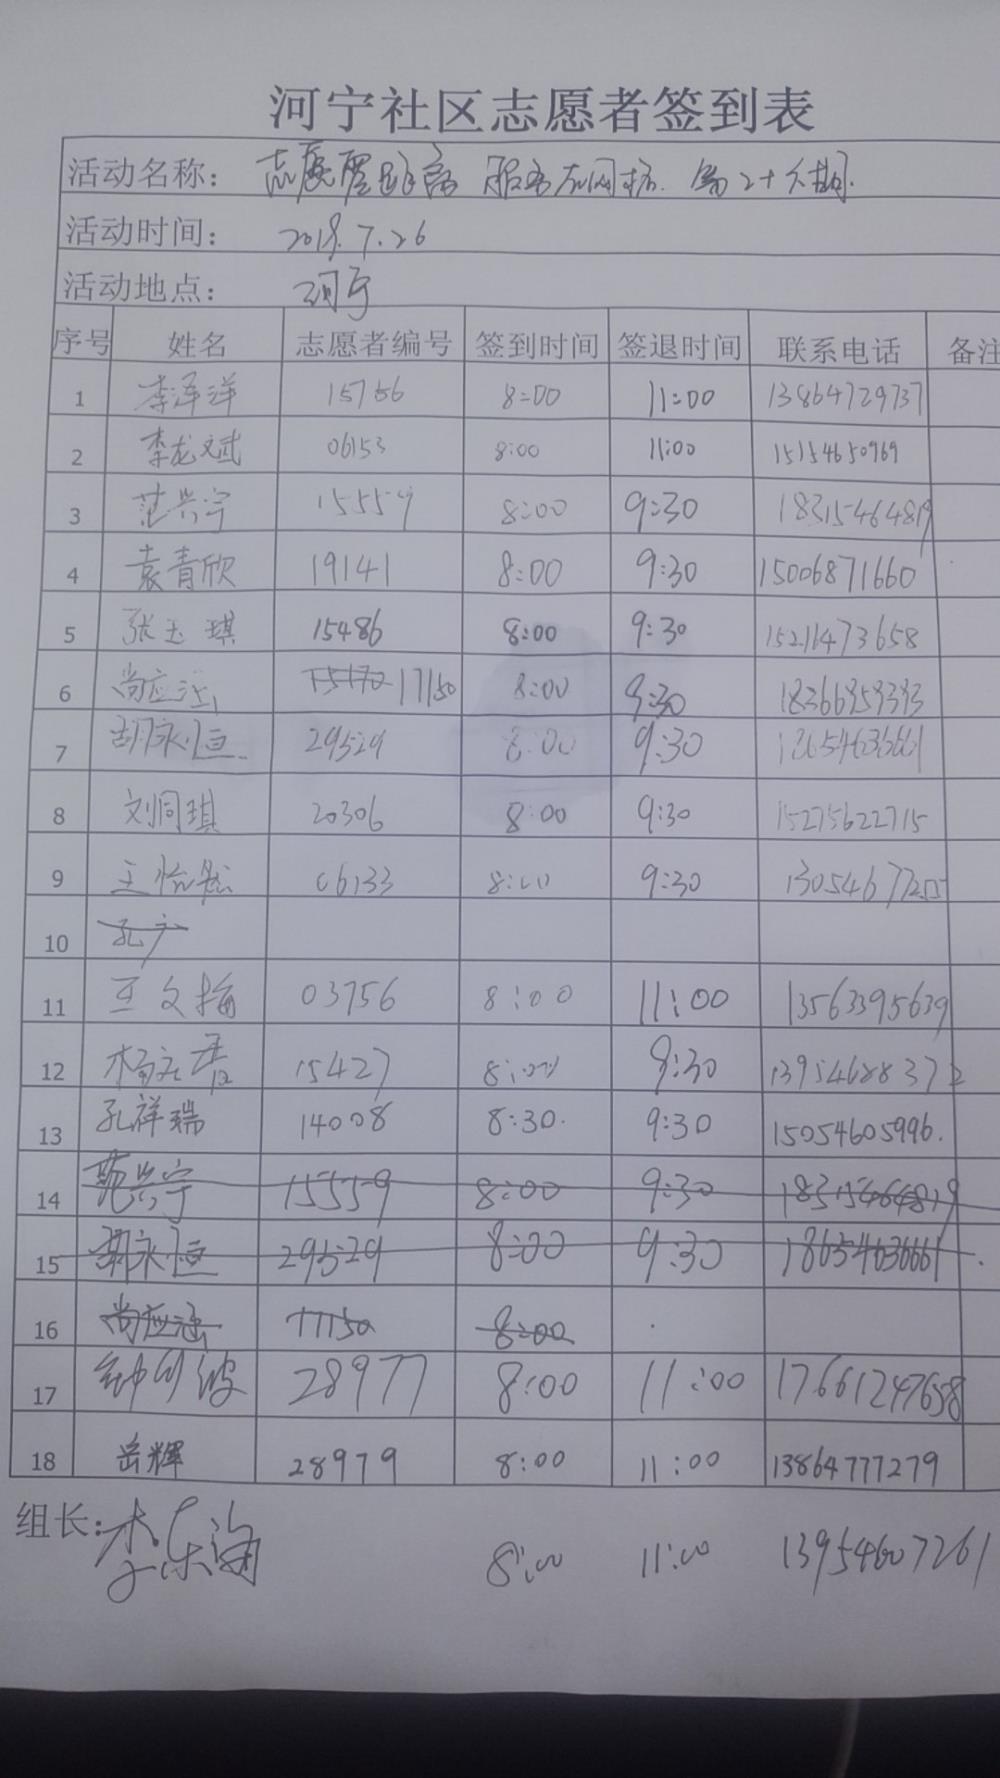 河宁社区志愿者签到表
活动名称：志愿 服务
活动时间：2018.7.26
活动地点：河宁
序号 姓名 志愿者编号 签到时间 签退时间 联系电话 备注
1 李泽洋 15756 8:00 11:00 13864729737
2 李龙斌 06153 8:00 11:00 15154650969
3 范兴宁 15559 8:00 9:30 18315464819
4 袁青欣 19141 8:00 9:30 15006871660
5 张玉琪 15486 8:00 9:30 15216473658
6 尚应涵 15170 17150 8:00 9:30
7 胡永恒 29529 8:00 9:30 18654636661
8 刘同琪 20306 8:00 9:30 15275622715
9 王怡然 06133 8:00 9:30
10 孔
11 王文梅 03756 8:00 11:00 13563395639
12 杨 15427 8:00 9:30 13954688372
13 孔祥瑞 14008 8:30 9:30 15054605996
14 范兴宁 15559 8:00 9:30 18315464819
15 胡永恒 29529 8:00 9:30 18654636661
16 尚应涵 17150 8:00
17 28977 8:00 11:00 17661247658
18 岳辉 28979 8:00 11:00 13864777279
组长：李东海 8:00 11:00 13954607261